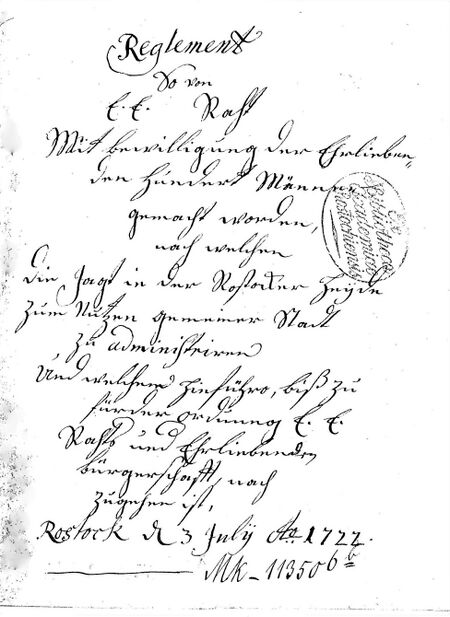 Reglement
So von
E. E. Raht
Mit bewilligung der Ehrlieben„
den Hundert Männer
gemacht worden,
nach welchen
die Jagt in der Rostocker Heyde
zum Nutzen gemeiner Stadt
zu administriren
Und welchem hinführo, biß zu
fürder ordnung E. E.
Rahts und Ehrliebenden
bürgerschafft, nach
zugehen ist,
Rostock d 3 July Ao 1722.
Mk-11350 6b
Ex
Bibliotheca
academica
Rostochiensi